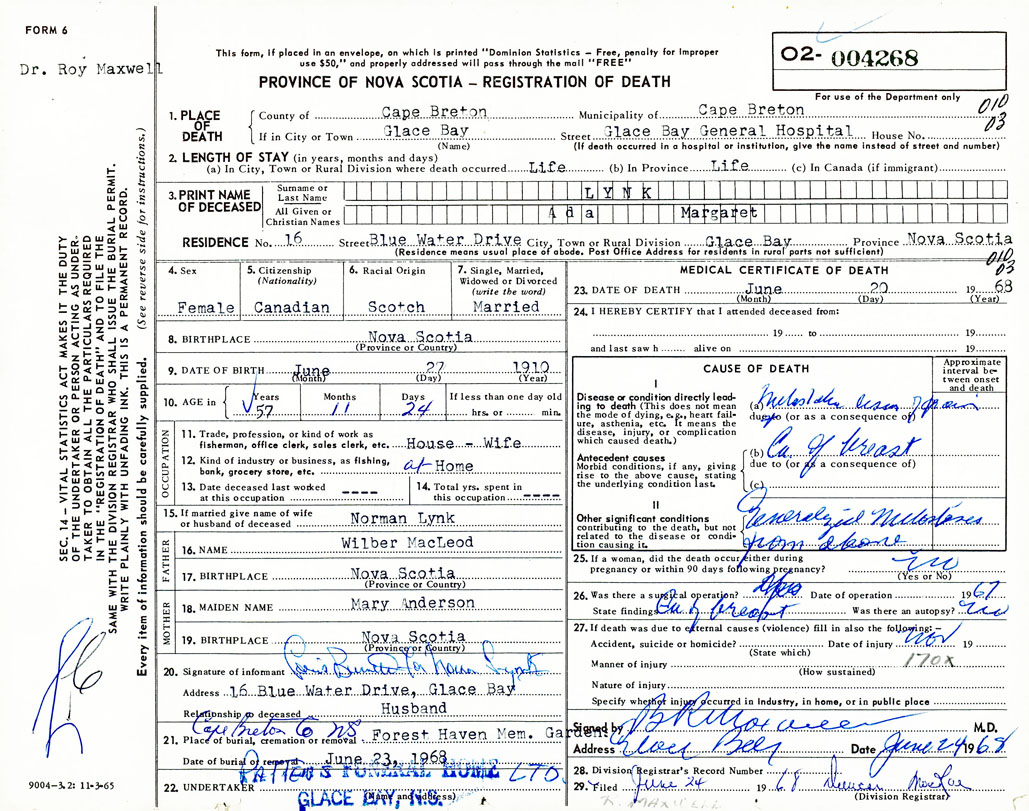 FORM 6
Dr. Roy Maxwell
This form, if placed in an envelope, on which is printed "Dominion Statistics – Free, penalty for improper
use $50," and properly addressed will pass through the mail "FREE"
PROVINCE OF NOVA SCOTIA – REGISTRATION OF DEATH
O2- 004268
For use of the Department only
010
03
1. PLACE OF DEATH
County of Cape Breton Municipality of Cape Breton
If in City or Town Glace Bay Street Glace Bay General Hospital House No.
(Name) (If death occurred in a hospital or institution, give the name instead of street and number)
2. LENGTH OF STAY (in years, months and days)
(a) In City, Town or Rural Division where death occurred Life (b) In Province Life (c) In Canada (if immigrant)
3. PRINT NAME OF DECEASED
Surname or Last Name LYNK
All Given or Christian Names Ada Margaret
RESIDENCE No. 16 Street Blue Water Drive City, Town or Rural Division Glace Bay Province Nova Scotia
(Residence means usual place of abode. Post Office Address for residents in rural parts not sufficient)
010
03
4. Sex
Female
5. Citizenship
(Nationality)
Canadian
6. Racial Origin
Scotch
7. Single, Married,
Widowed or Divorced
(write the word)
Married
8. BIRTHPLACE Nova Scotia
(Province or Country)
9. DATE OF BIRTH June 27 1910
(Month) (Day) (Year)
10. AGE in Years Months Days If less than one day old
57 11 24 hrs. or min.
OCCUPATION
11. Trade, profession, or kind of work as
fisherman, office clerk, sales clerk, etc. House - Wife
12. Kind of industry or business, as fishing,
bank, grocery store, etc. at Home
13. Date deceased last worked
at this occupation ----
14. Total yrs. spent in
this occupation ----
15. If married give name of wife
or husband of deceased Norman Lynk
FATHER
16. NAME Wilber MacLeod
17. BIRTHPLACE Nova Scotia
(Province or Country)
MOTHER
18. MAIDEN NAME Mary Anderson
19. BIRTHPLACE Nova Scotia
(Province or Country)
20. Signature of informant
Address 16 Blue Water Drive, Glace Bay
Relationship to deceased Husband
Cape Breton Co NS
21. Place of burial, cremation or removal Forest Haven Mem. Gardens
Date of burial or removal June 23, 1968
22. UNDERTAKER PATTEN'S FUNERAL HOME LTD.
(Name and address)
GLACE BAY, N.S.
MEDICAL CERTIFICATE OF DEATH
23. DATE OF DEATH June 20 1968
(Month) (Day) (Year)
24. I HEREBY CERTIFY that I attended deceased from:
19 to 19
and last saw h alive on 19
CAUSE OF DEATH
Approximate interval between onset and death
I
Disease or condition directly leading to death (This does not
mean the mode of dying, e.g., heart failure, asthenia, etc. It means the
disease, injury, or complication
which caused death.)
(a)
due to (or as a consequence of)
Antecedent causes
Morbid conditions, if any, giving
rise to the above cause, stating
the underlying condition last.
(b) Ca. of breast
due to (or as a consequence of)
(c)
II
Other significant conditions
contributing to the death, but not
related to the disease or condition causing it.
Generalized
from above
25. If a woman, did the death occur either during
pregnancy or within 90 days following pregnancy? no
(Yes or No)
26. Was there a surgical operation? Date of operation 1967
State findings Ca of breast Was there an autopsy? no
27. If death was due to external causes (violence) fill in also the following:–
Accident, suicide or homicide? Date of injury 19
(State which)
Manner of injury 170X
(How sustained)
Nature of injury
Specify whether injury occurred in Industry, in home, or in public place
Signed by M.D.
Address Glace Bay Date June 24 1968
28. Division Registrar's Record Number
29. Filed June 24 1968
(Division Registrar)
R. MAXWELL
SEC. 14 – VITAL STATISTICS ACT MAKES IT THE DUTY
OF THE UNDERTAKER OR PERSON ACTING AS UNDER-
TAKER TO OBTAIN ALL THE PARTICULARS REQUIRED
IN THE "REGISTRATION OF DEATH" AND TO FILE THE
SAME WITH THE DIVISION REGISTRAR WHO SHALL ISSUE THE BURIAL PERMIT.
WRITE PLAINLY WITH UNFADING INK. THIS IS A PERMANENT RECORD.
Every item of information should be carefully supplied. (See reverse side for instructions.)
9004-3.2: 11-3-65